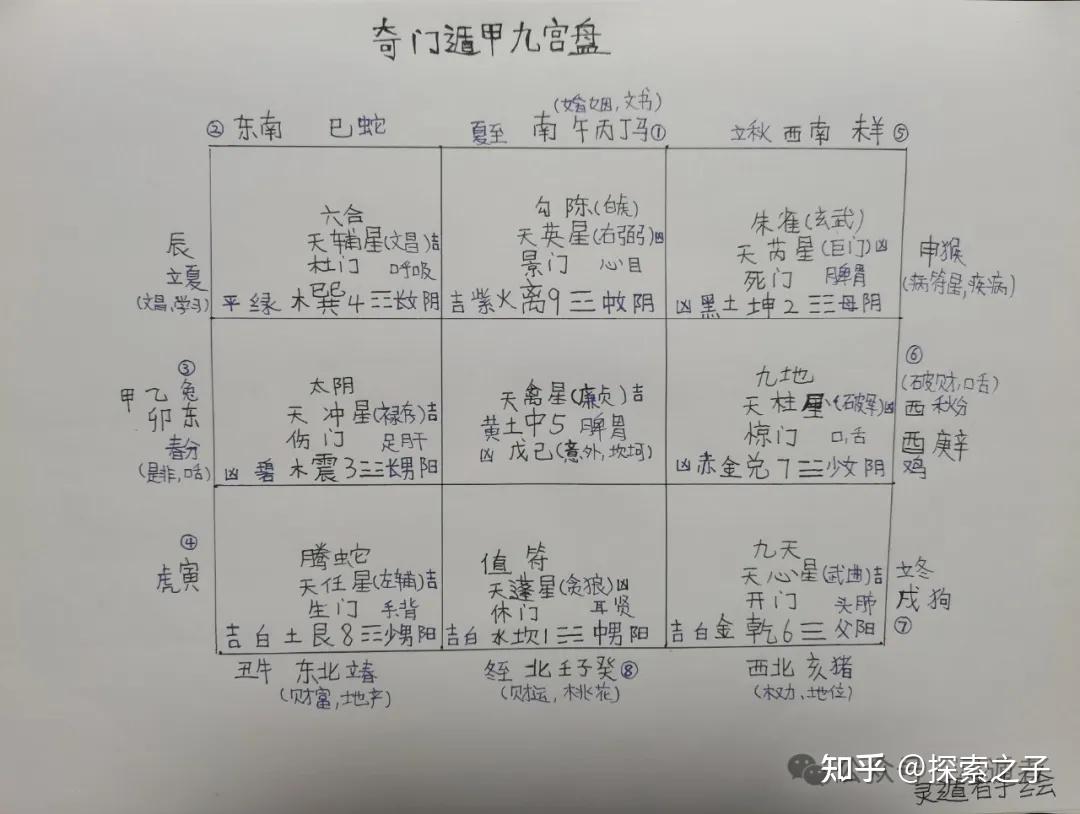 奇门遁甲九宫盘
(婚姻,文书)
② 东南 巳蛇 夏至 南 午丙丁马① 立秋 西南 未羊 ⑤
六合
天辅星(文昌)吉
杜门 呼吸
平 绿 木 巽 4 ☴ 长女 阴
辰
立夏
(文昌,学习)
勾陈(白虎)
天英星(右弼)凶
景门 心目
吉 紫 火 离 9 ☲ 中女 阴
朱雀(玄武)
天芮星(巨门)凶
死门 脾胃
凶 黑 土 坤 2 ☷ 母 阴
申猴
(病符星,疾病)
③
甲乙兔
卯东
春分
(是非,口舌)
太阴
天冲星(禄存)吉
伤门 足肝
凶 碧 木 震 3 ☳ 长男 阳
天禽星(廉贞)吉
黄土中5 脾胃
凶 戊己(意外,坎坷)
九地
天柱星(破军)凶
惊门 口舌
凶 赤 金 兑 7 ☱ 少女 阴
⑥
(破财,口舌)
西 秋分
酉 庚辛
鸡
④
虎寅
腾蛇
天任星(左辅)吉
生门 手背
吉 白 土 艮 8 ☶ 少男 阳
值符
天蓬星(贪狼)凶
休门 耳肾
吉 白 水 坎 1 ☵ 中男 阳
九天
天心星(武曲)吉
开门 头肺
吉 白 金 乾 6 ☰ 父 阳
立冬
戌狗
⑦
丑牛 东北 立春 冬至 北 壬子癸⑧ 西北 亥猪
(财富,地产) (财运,桃花) (权力、地位)
知乎 @探索之子